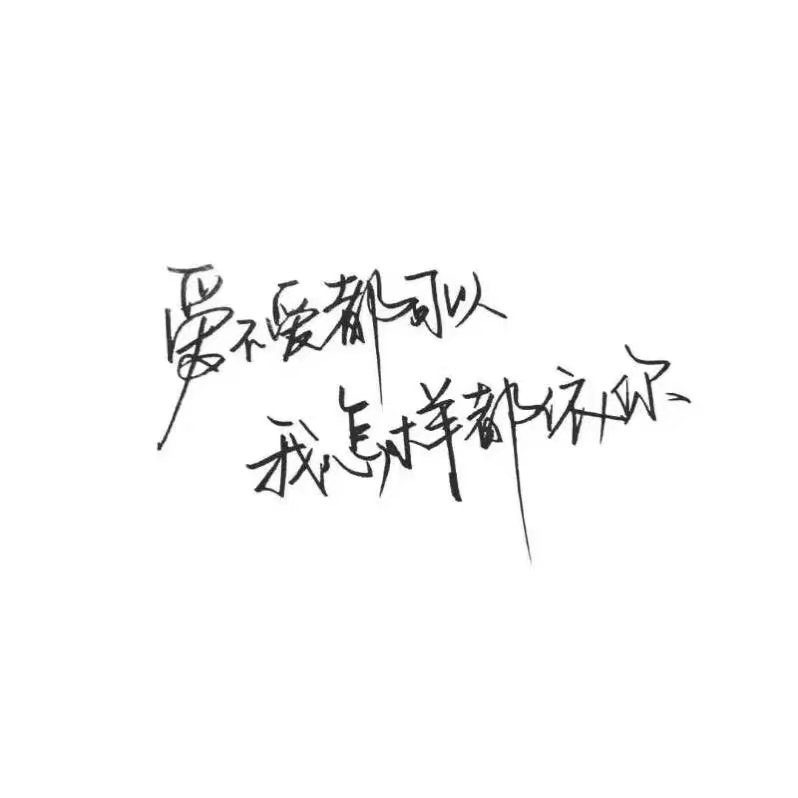 爱不爱都可以
我怎样都依你